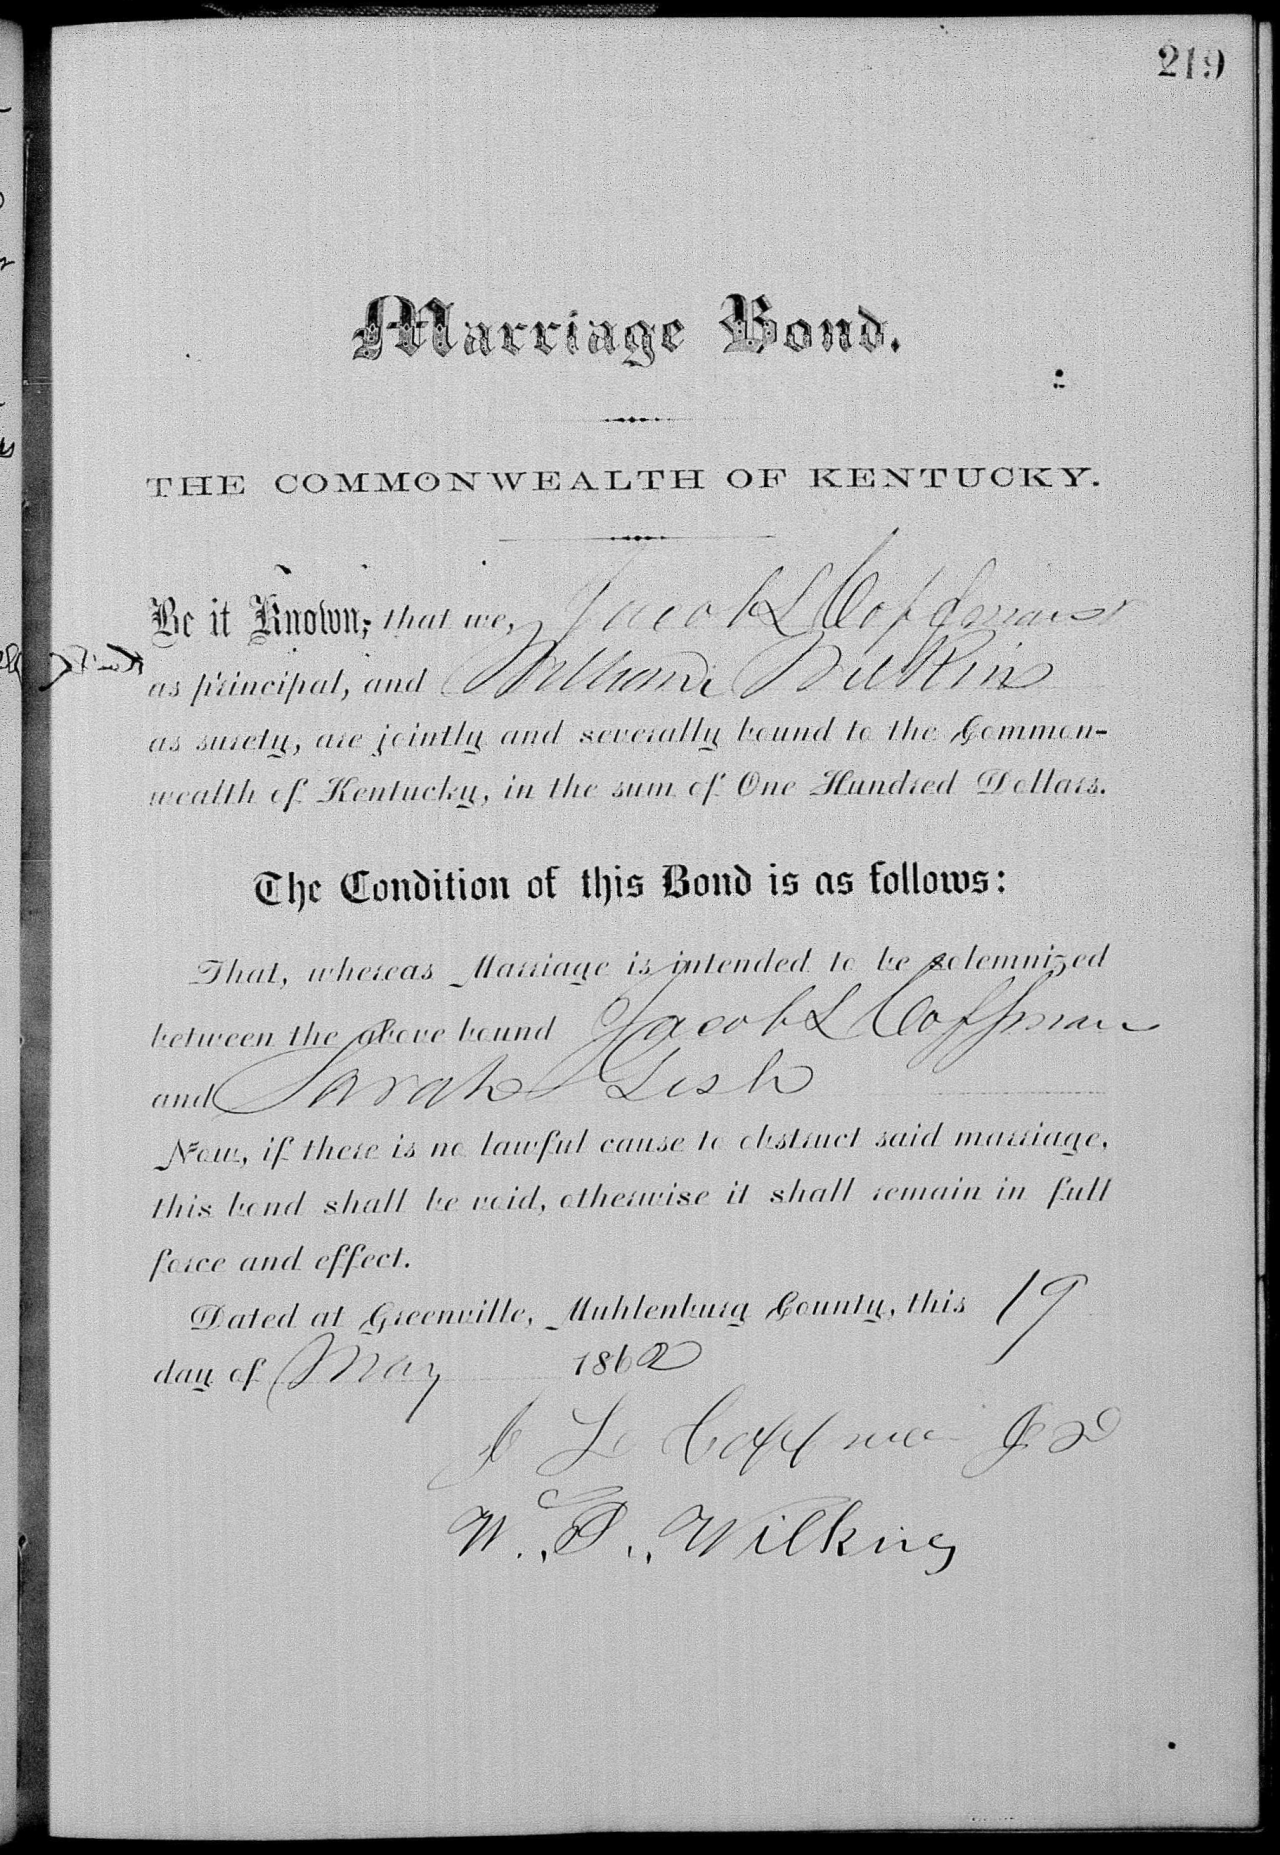 219
Marriage Bond.
THE COMMONWEALTH OF KENTUCKY.
Be it Known, that we, Jacob L Coffman
as principal, and William Wilkins
as surety, are jointly and severally bound to the Common-
wealth of Kentucky, in the sum of One Hundred Dollars.
The Condition of this Bond is as follows:
That, whereas Marriage is intended to be solemnized
between the above bound Jacob L Coffman
and Sarah Lish
Now, if there is no lawful cause to obstruct said marriage,
this bond shall be void, otherwise it shall remain in full
force and effect.
Dated at Greenville, Muhlenburg County, this 19
day of May 1862
J L Coffman
W. Wilkins